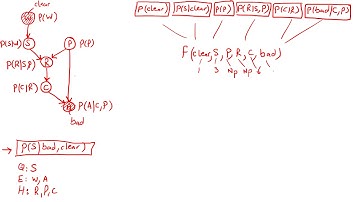 clear
W P(W)
P(S|W) S P P(P)
P(R|S,P) R
P(C|R) C
A P(A|C,P)
→ P(S|bad,clear)
Q: S
E: W,A
H: R,P,C
P(clear) P(S|clear) P(P) P(R|S,P) P(C|R) P(bad|C,P)
F(clear,S,P,R,C,bad)
1 3 Np Np 6 1